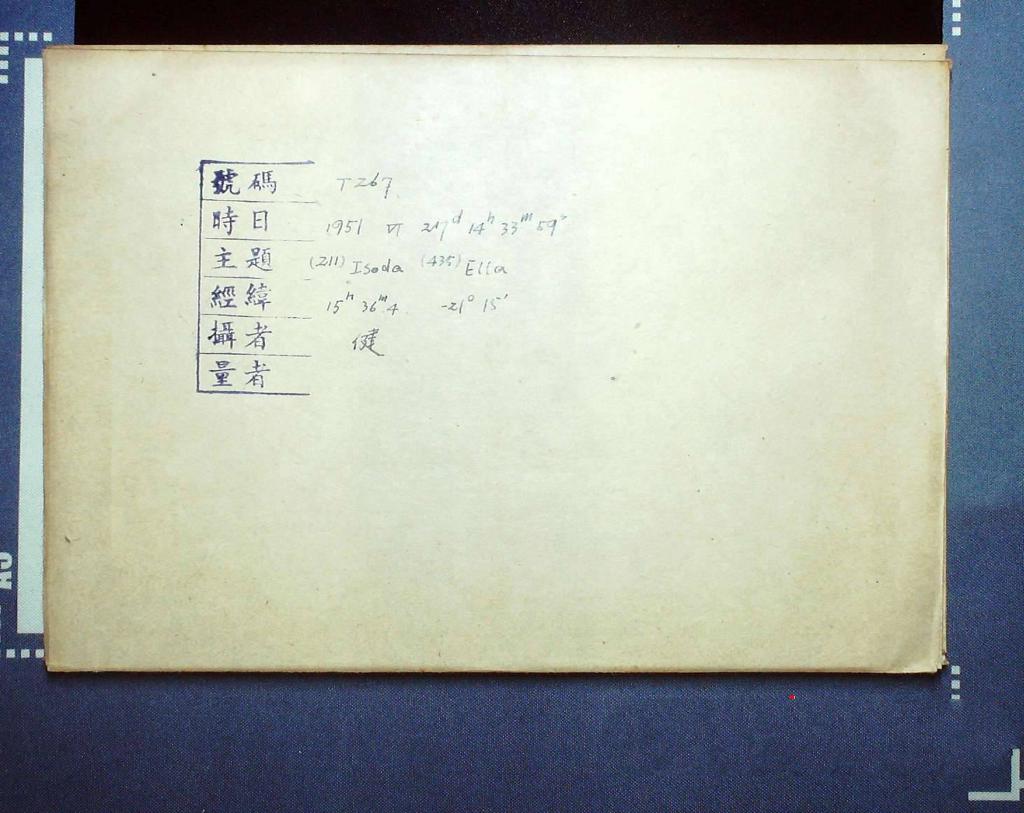 號碼 T267
時日 1951 VI 27ᵈ 14ʰ 33ᵐ 59ˢ
主題 (211) Isoda (435) Ella
經緯 15ʰ 36ᵐ.4 -21° 15′
攝者 健
量者